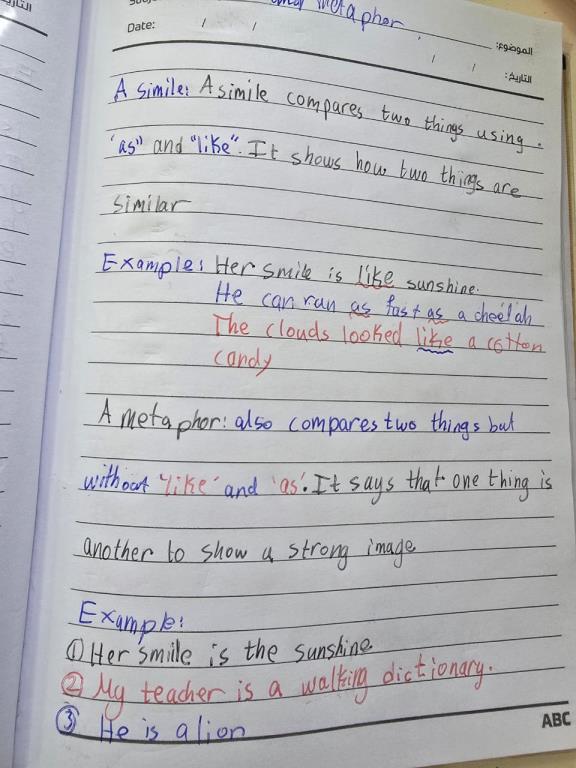 and metaphor.
Date: / /
الموضوع:
/ / التاريخ:
A simile: A simile compares two things using.
"as" and "like". It shows how two things are
similar
Example: Her smile is like sunshine.
He can run as fast as a cheetah
The clouds looked like a cotton
candy
A metaphor: also compares two things but
without 'like' and 'as'. It says that one thing is
another to show a strong image
Example:
① Her smile is the sunshine
② My teacher is a walking dictionary.
③ He is a lion
ABC